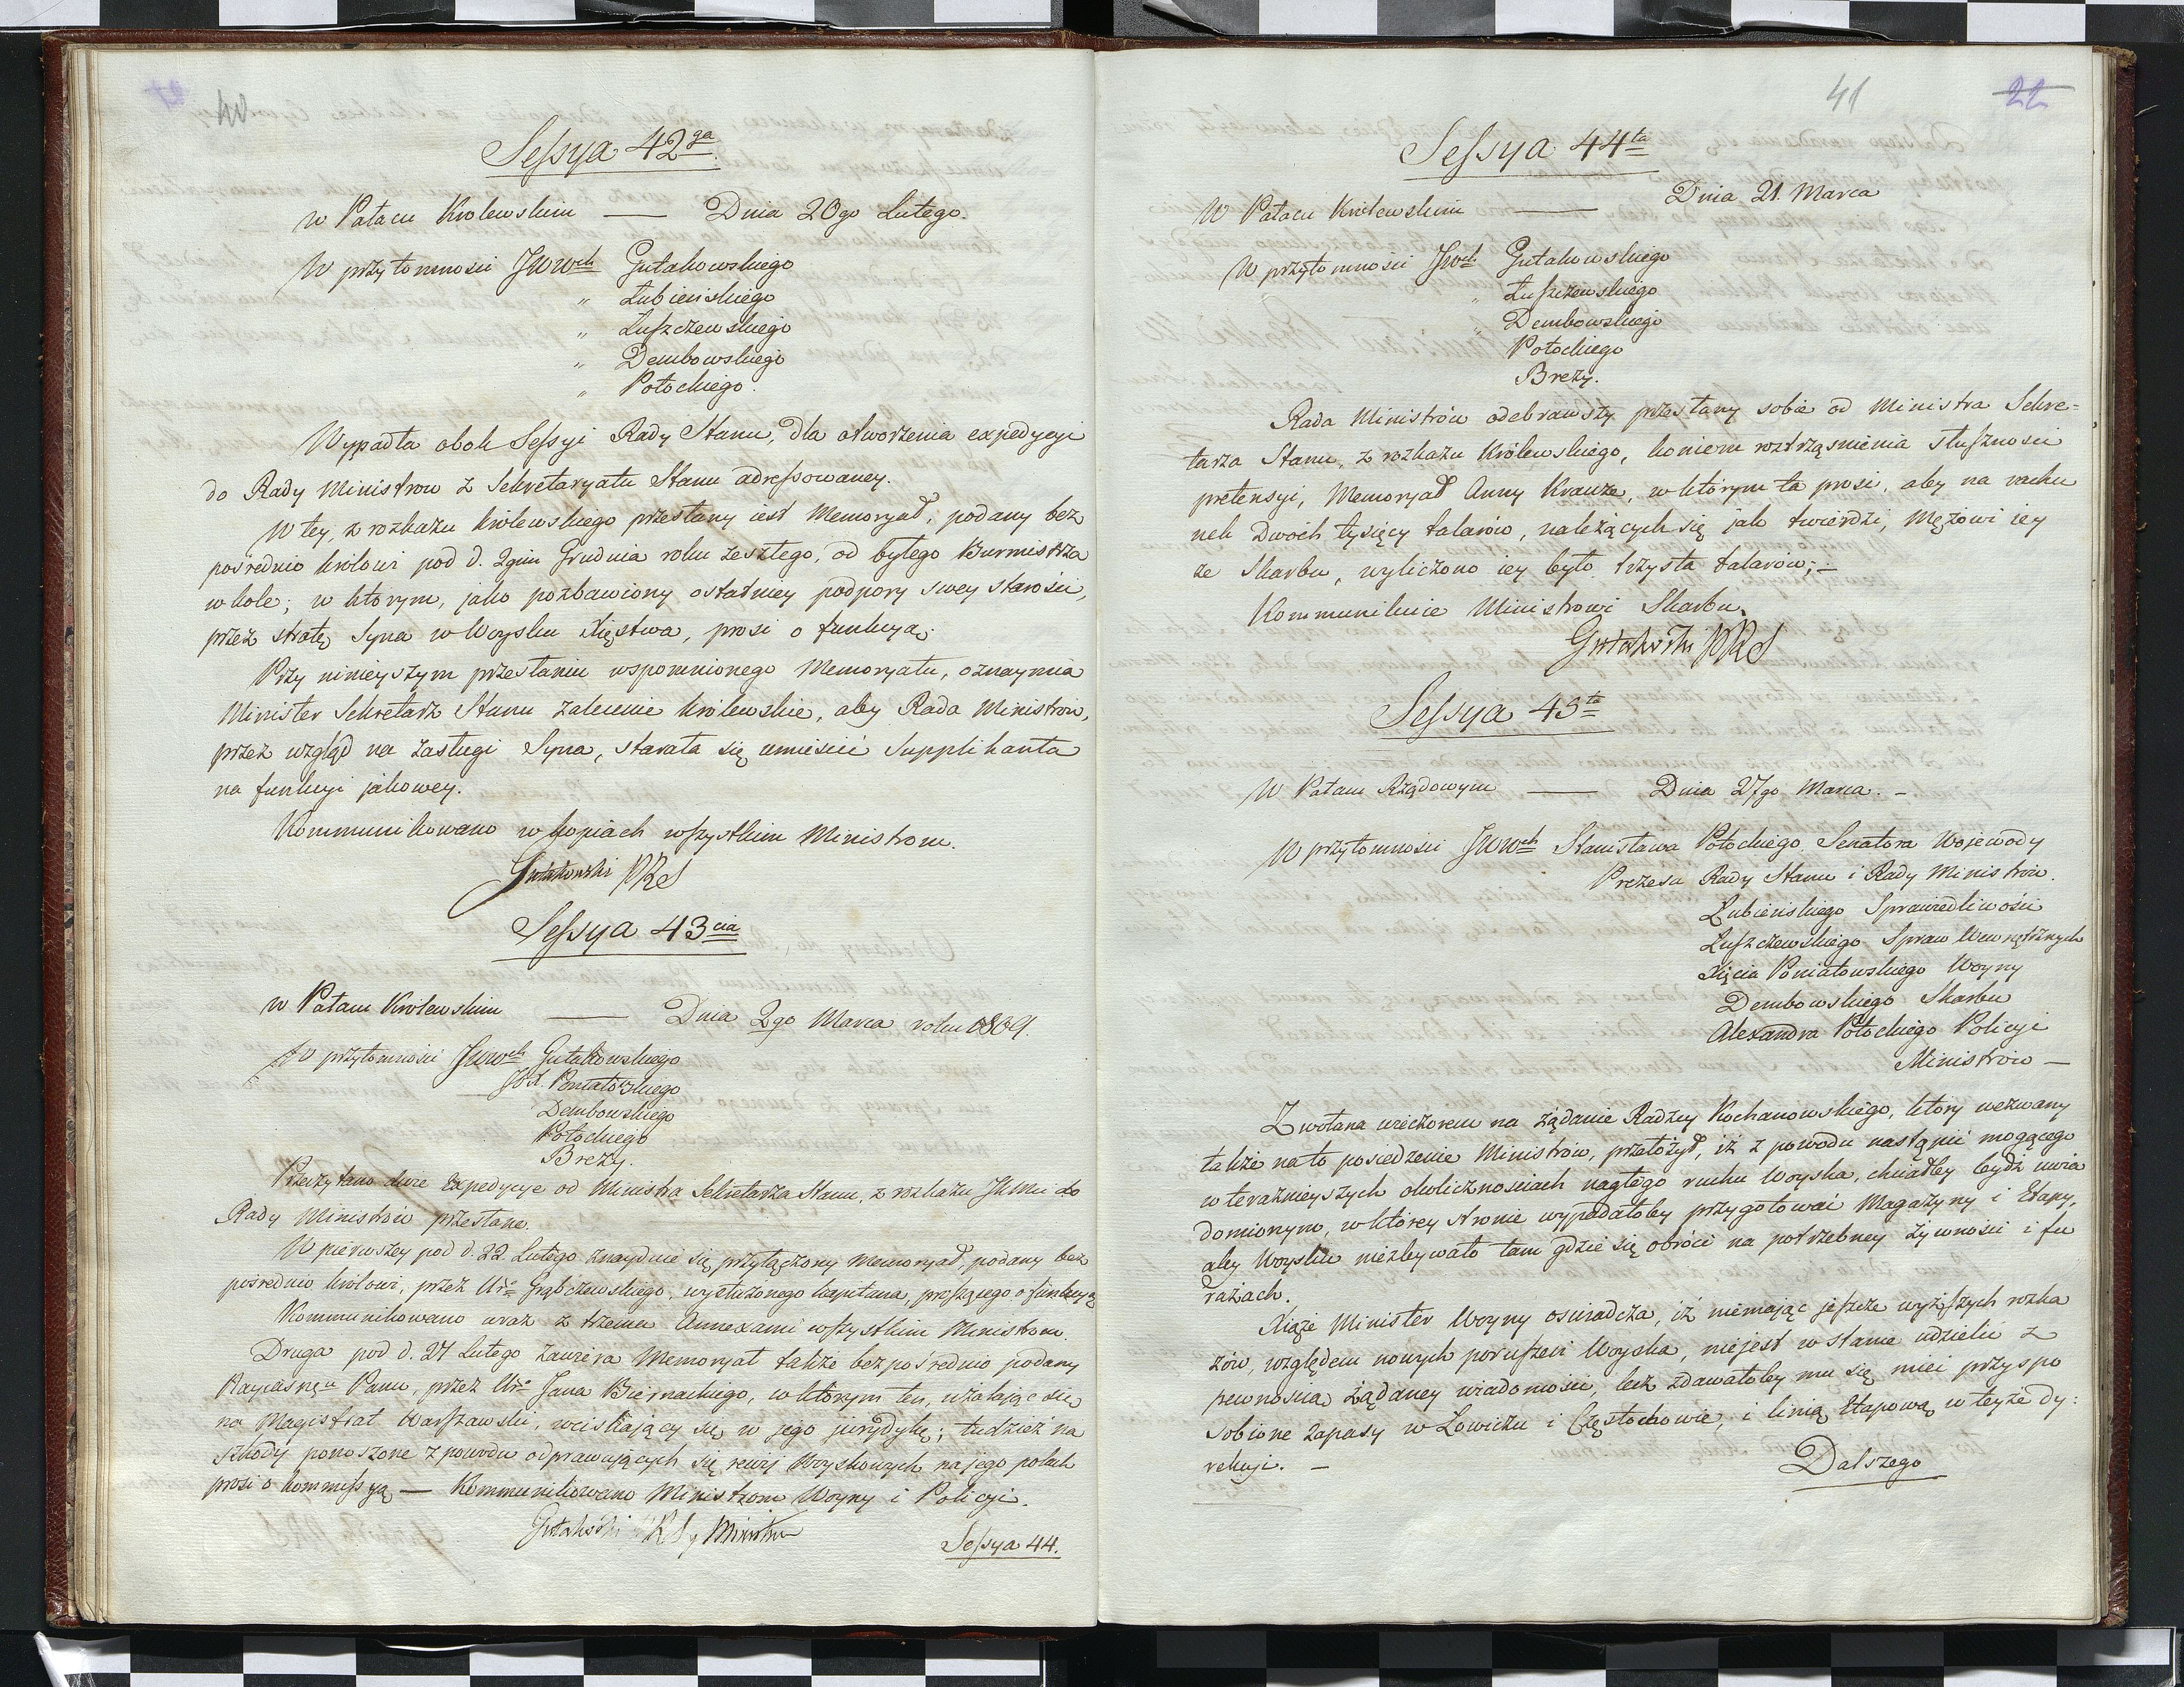 40
Sessya 42ga
w Pałacu Krolewskim — Dnia 20go Lutego.
W przytomnosci JWWch Gutakowskiego
" Łubieńskiego
" Łuszczewskiego
" Dembowskiego
" Potockiego.
Wypadła obok Sessyi Rady Stanu, dla otworzenia expedycyi
do Rady Ministrow z Sekretaryatu Stanu adressowaney.
W tey, z rozkazu królewskiego przesłany iest Memoryał, podany bez
pośrednio królowi pod d. 2gim Grudnia roku zeszłego, od byłego Burmistrza
w Kole; w ktorym, jako pozbawiony ostatniey podpory swey starości,
przez stratę Syna w Woysku Xięstwa, prosi o funkcyą.
Przy ninieyszym przesłaniu wspomnionego Memoryału, oznaymia
Minister Sekretarz Stanu zalecenie królewskie, aby Rada Ministrow,
przez wzgląd na zasługi Syna, starała się umieścić Supplikanta
na funkcyi jakowey.
Kommunikowano w kopiach wszystkim Ministrom.
Gutakowski PRS
Sessya 43cia
w Pałacu Krolewskim — Dnia 2go Marca roku 1809.
W przytomności JWWch Gutakowskiego
JOX. Poniatowskiego
Dembowskiego
Potockiego
Brezy.
Przeczytano dwie Expedycye od Ministra Sekretarza Stanu, z rozkazu JKMci do
Rady Ministrów przesłane.
W pierwszey pod d. 22 Lutego znayduie się przyłączony memoryał, podany bez
pośrednio królowi, przez Uro Grąbczewskiego, wysłużonego kapitana, proszącego o funkcyą
Kommunikowano wraz z trzema Annexami wszystkim Ministrom.
Druga pod d. 27 Lutego zawiera Memoryał także bezpośrednio podany
Nayjasnu Panu, przez Uro Jana Biernackiego, w którym ten, użalając się
na Magistrat Warszawski, wciskający się w jego jurydykę; tudzież na
szkody ponoszone z powodu odprawujących się rewij Woyskowych na jego polach
prosi o kommissyą — Kommunikowano Ministrom Woyny i Policyi.
Gutakowski PRS y Ministrow
Sessya 44.
41
22
Sessya 44ta
W Pałacu Królewskim — Dnia 21. Marca
W przytomności JWch Gutakowskiego
" Łuszczewskiego
" Dembowskiego
Potockiego
Brezy.
Rada Ministrów odebrawszy przesłany sobie od Ministra Sekre=
tarza Stanu, z rozkazu Królewskiego, koniem roztrząśnienia słuszności
pretensyi, Memoryał Anny Krauze, w którym ta prosi, aby na rachu
nek Dwóch tysięcy talarów, należących się jak twierdzi, Mężowi iey
ze Skarbu, wyliczono iey było trzysta talarów; —
Kommunikuie Ministrowi Skarbu.
Gutakowski PRS
Sessya 45ta
W Pałacu Rządowym — Dnia 27go Marca. —
W przytomności JWWch Stanisława Potockiego Senatora Wojewody
Prezesa Rady Stanu i Rady Ministrów.
Łubieńskiego Sprawiedliwości
Łuszczewskiego Spraw Wewnętrznych
Xięcia Poniatowskiego Woyny
Dembowskiego Skarbu
Alexandra Potockiego Policyi
Ministrów —
Zwołana wieczorem na żądanie Radzcy Kochanowskiego, który wezwany
także na to posiedzenie Ministrów, przełożył, iż z powodu nastąpić mogącego
w teraźnieyszych okolicznościach nagłego ruchu Woyska, chciałby bydź uwia
domionym, w którey stronie wypadałoby przygotować Magazyny i Etapy,
aby Woysku niezbywało tam gdzie się obróci na potrzebney żywności i fu
rażach.
Xiąże Minister Woyny oświadcza, iż niemając jeszcze wyższych rozka
zów, względem nowych poruszeń Woyska, niejest w stanie udzielić z
pewnością żądaney wiadomości, lecz zdawałoby mu się mieć przyspo
sobione zapasy w Łowiczu i Częstochowie, i linią Etapową w teyże dy:
rekcyi. —
Dalszego